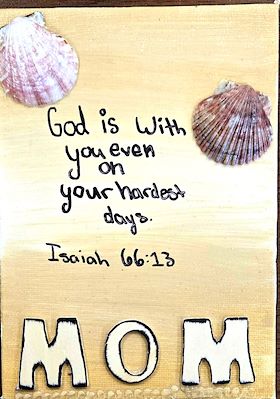 God is with
you even
on
your hardest
days.
Isaiah 66:13
MOM